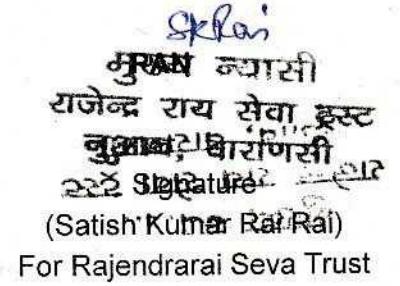 SKRai
मुख्य न्यासी
राजेन्द्र राय सेवा ट्रस्ट
वाराणसी
Signature
(Satish Kumar Rai)
For Rajendrarai Seva Trust